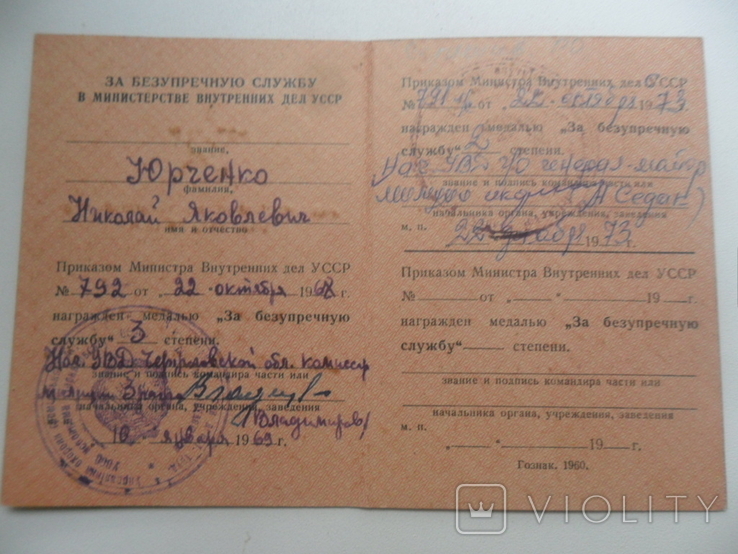 ЗА БЕЗУПРЕЧНУЮ СЛУЖБУ
В МИНИСТЕРСТВЕ ВНУТРЕННИХ ДЕЛ УССР
звание,
Юрченко
фамилия,
Николай Яковлевич
имя и отчество
Приказом Министра Внутренних дел УССР
№ 792 от „22" октября 1968 г.
награжден медалью „За безупречную
службу" 3 степени.
Нач. УВД обл. комиссар
звание и подпись командира части или
милиции 3 ранга
начальника органа, учреждения, заведения
/Владимиров/
10 января 1969 г.
Приказом Министра Внутренних дел СССР
№ от „22" октября 1973 г.
награжден медалью „За безупречную
службу" 2 степени.
Нач. УВД генерал-майор
звание и подпись командира части или
Седан)
начальника органа, учреждения, заведения
м. п. 22 1973 г.
Приказом Министра Внутренних дел УССР
№ от „ " 19 г.
награжден медалью „За безупречную
службу" степени.
звание и подпись командира части или
начальника органа, учреждения, заведения
м. п.
„ " 19 г.
Гознак. 1960.
VIOLITY